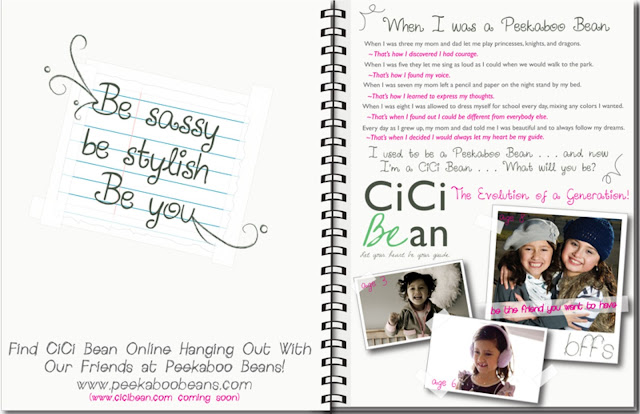 Be sassy
be stylish
Be you
Find CiCi Bean Online Hanging Out With
Our Friends at Peekaboo Beans!
www.peekaboobeans.com
(www.cicibean.com coming soon)
When I was a Peekaboo Bean
When I was three my mom and dad let me play princesses, knights, and dragons.
~That's how I discovered I had courage.
When I was five they let me sing as loud as I could when we would walk to the park.
~That's how I found my voice.
When I was seven my mom left a pencil and paper on the night stand by my bed.
~That's how I learned to express my thoughts.
When I was eight I was allowed to dress myself for school every day, mixing any colors I wanted.
~That's when I found out I could be different from everybody else.
Every day as I grew up, my mom and dad told me I was beautiful and to always follow my dreams.
~That's when I decided I would always let my heart be my guide.
I used to be a Peekaboo Bean . . . and now
I'm a CiCi Bean . . . What will you be?
CiCi
Bean
let your heart be your guide
The Evolution of a Generation!
age 3
be the friend you want to have
bffs
age 6